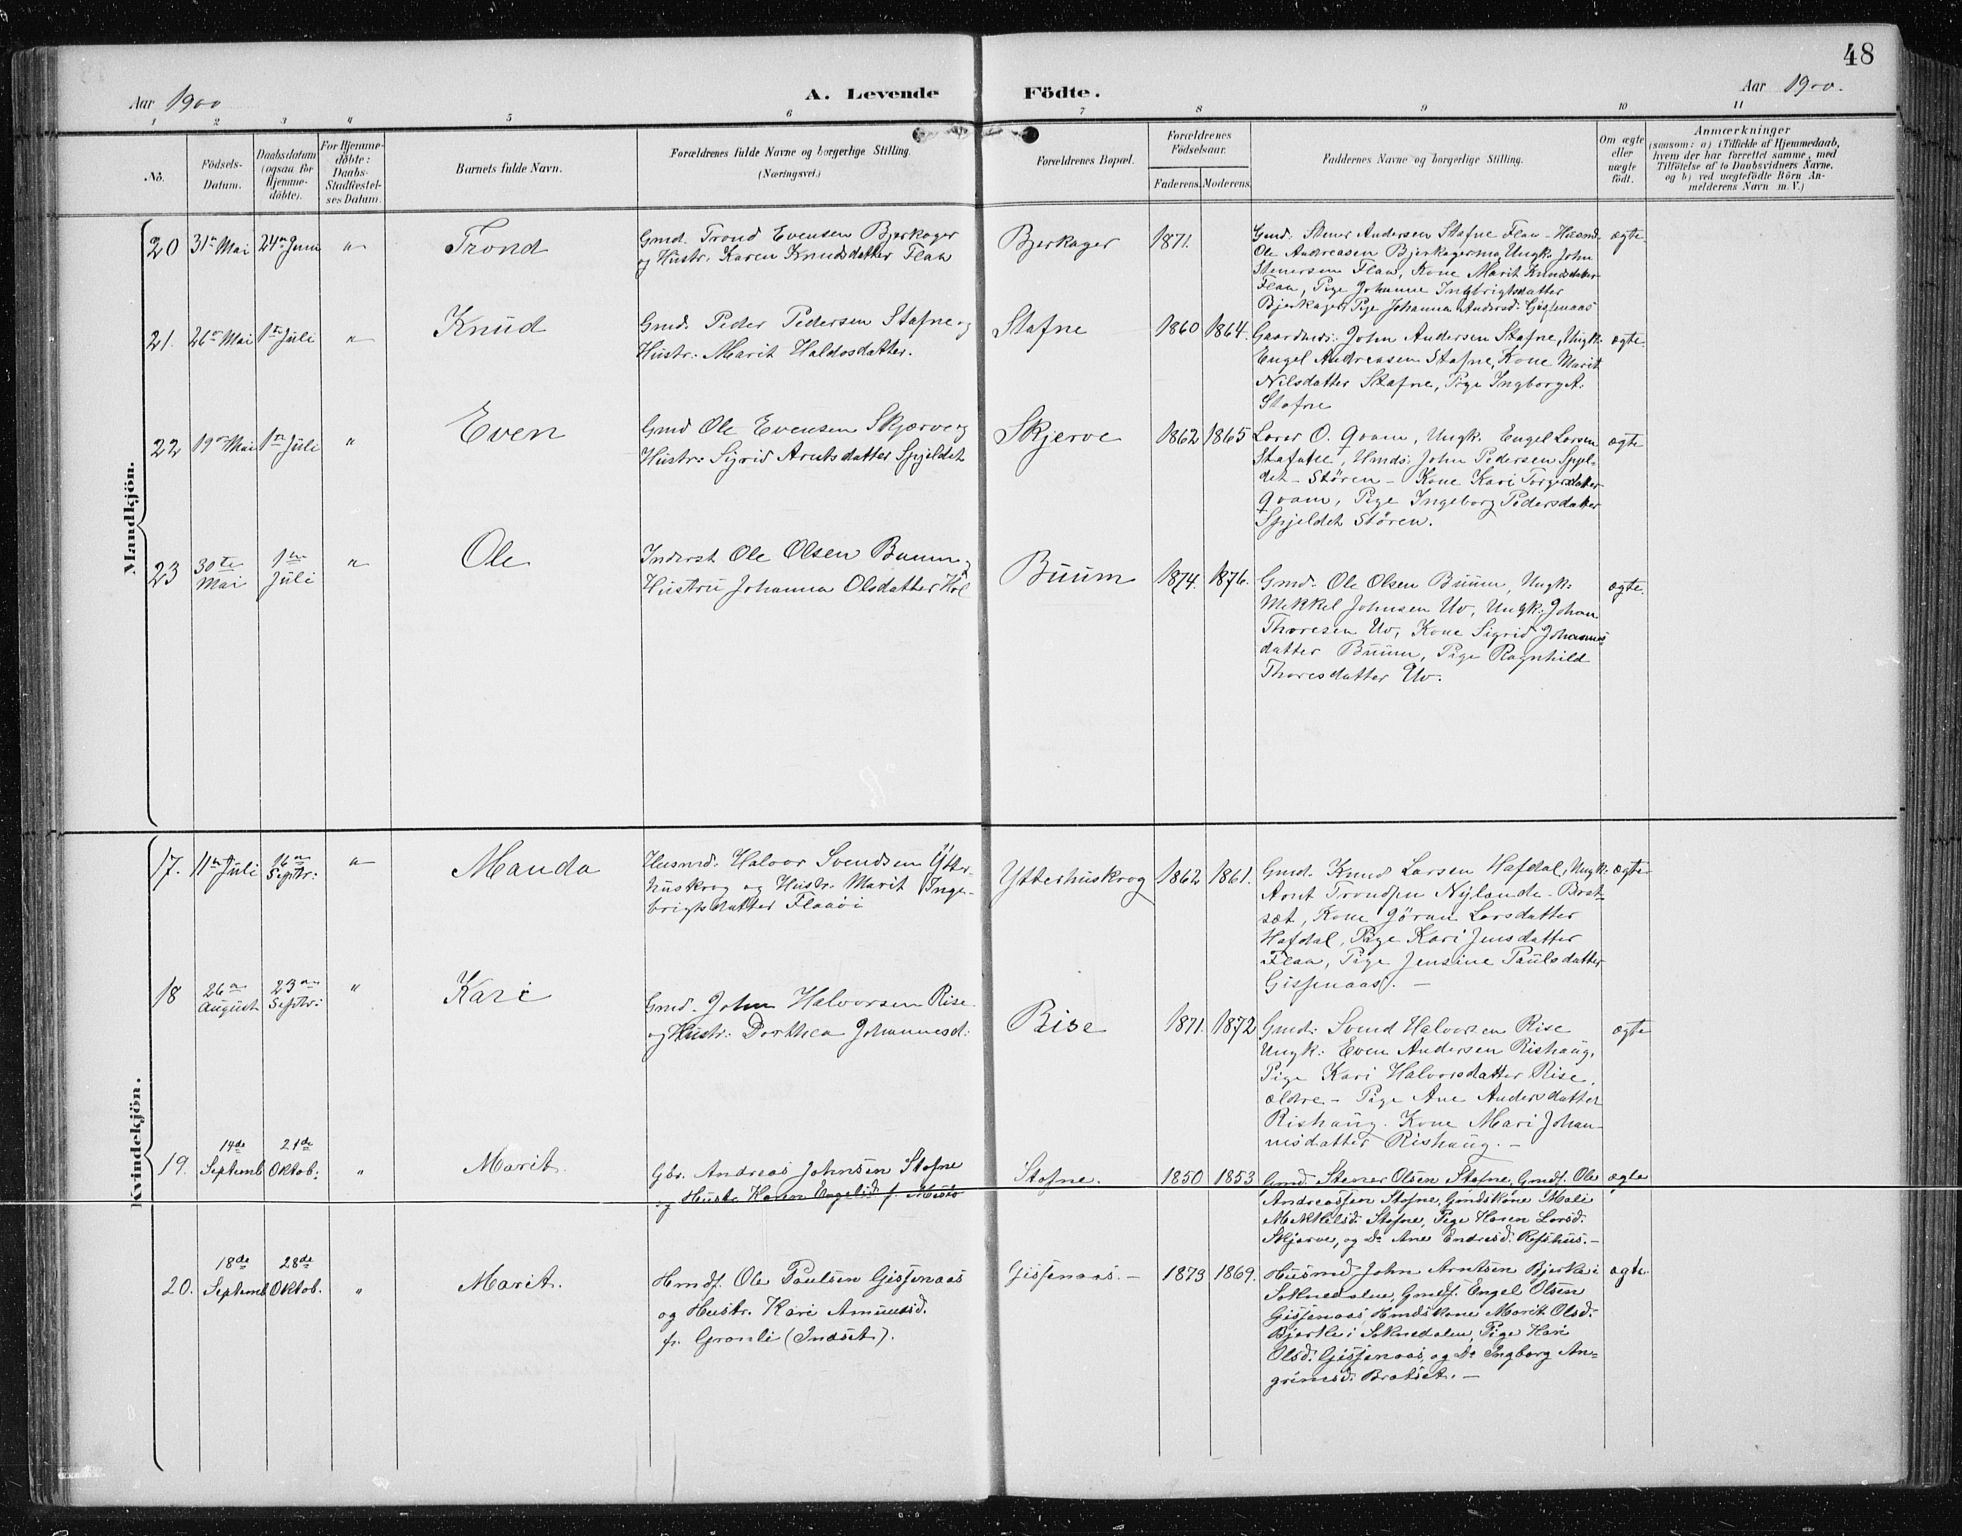 48
Aar 1900
A. Levende Födte.
Aar 1900.
1 2 3 4 5 6 7 8 9 10 11
No.
Födsels-
Datum.
Daabsdatum
(ogsaa for
Hjemme-
döbte).
For Hjemme-
döbte:
Daabs-
Stadfæstel-
ses Datum.
Barnets fulde Navn.
Forældrenes fulde Navne og borgerlige Stilling.
(Næringsvei.)
Forældrenes Bopæl.
Forældrenes
Födselsaar.
Faderens. Moderens.
Faddernes Navne og borgerlige Stilling.
Om ægte
eller
uægte
født.
Anmærkninger
(saasom: a) i Tilfælde af Hjemmedaab,
hvem der har forrettet samme, med
Tilföielse af to Daabsvidners Navne.
og b) ved uægtefödte Börn An-
melderens Navn m. V.)
Mandkjön.
20 31te Mai 24de Juni " Trond
Gmd. Trond Evensen Bjerkager
og Hustr. Karen Knudsdatter Flaa
Bjerkager 1871.
Gmd. Stener Andersen Stafne Flaa - Husmd.
Ole Andreasen Bjerkager, Ungk. John
Stenersen Flaa, Kone Marit Knudsdatter
Flaa, Pige Johanne Ingbrigtsdatter
Bjerkager, Pige Johanna Andersd. Gisjenaas
ægte
21. 26de Mai 1ste Juli " Knud
Gmd. Peder Pedersen Stafne og
Hustr. Marit Haldosdatter.
Stafne 1860 1864.
Gaardmd: John Andersen Stafne, Ungk:
Engel Andreasen Stafne, Kone Marit
Nilsdatter Stafne, Pige Ingborg A.
Stafne
ægte.
22 19de Mai 1ste Juli " Even
Gmd Ole Evensen Skjerve og
Hustr. Sigrid Arntsdatter Spjeldet
Skjerve 1862 1865
Lærer O. Qvam, Ungk. Engel Larsen
Stafne, Hmds: John Pedersen Spjel-
det - Støren - Kone Kari Torgersdatter
Qvam, Pige Ingeborg Pedersdatter
Spjeldet Støren.
ægte
23 30te Mai 1ste Juli " Ole
Inderst Ole Olsen Buum og
Hustru Johanna Olsdatter Hol
Buum 1874. 1876.
Gmd. Ole Olsen Buum, Ungk:
Mikkel Johnsen Uv, Ungk: Johan
Thoresen Uv, Kone Sigrid Johannes
datter Buum, Pige Ragnhild
Thoresdatter Uv.
ægte.
Kvindekjön.
17. 11te Juli 16de Septbr: " Manda
Husmd. Halvor Svendsen Ytter-
huskrog og Hustr. Marit Inge-
brigtsdatter Flaaöi
Ytterhuskrog 1862 1861.
Gmd. Knud Larsen Hafdal, Ungk:
Arnt Trondsen Nylande - Brat-
sæt, Kone Gøran Larsdatter
Hafdal, Pige Kari Jensdatter
Flaa, Pige Jensine Paulsdatter
Gisjenaas). -
ægte
18 26de August 23de Septbr: " Kari
Gmd. John Halvorsen Rise
og Hustr: Dorthea Johannesd:
Rise 1871. 1872
Gmd: Svend Halvorsen Rise
Ungk: Even Andersen Rishaug,
Pige Kari Halvorsdatter Rise,
ældre - Pige Ane Andersdatter
Rishaug. Kone Mari Johan-
nesdatter Rishaug. -
ægte
19. 14de Septemb 21de Oktob: " Marit.
Gbr. Andreas Johnsen Stafne
og Hustr. Karen Engelsd. f.
Stafne. 1850 1853
Gmd. Stener Olsen Stafne, Gmdf. Ole
Andreassen Stafne, Gmdskone Mali
Mikkelsd: Stafne, Pige Karen Larsd.
Skjerve, og Do Ane Endresd. Refshus. -
ægte
20. 18de Septemb 28de Oktob. " Marit.
Hmdf. Ole Paulsen Gisjenaas
og Hustr. Kari Amundsd.
fr. Granli (Indset).
Gisjenaas. - 1873 1869.
Husmd John Arntsen Bjerke i
Soknedalen, Gmdf. Engel Olsen
Gisjenaas, Hmdskone Marit Olsd:
Bjerke i Soknedalen, Pige Kari
Olsd. Gisjenaas, og Do Ingborg An-
grimsd: Bratset. -
ægte.